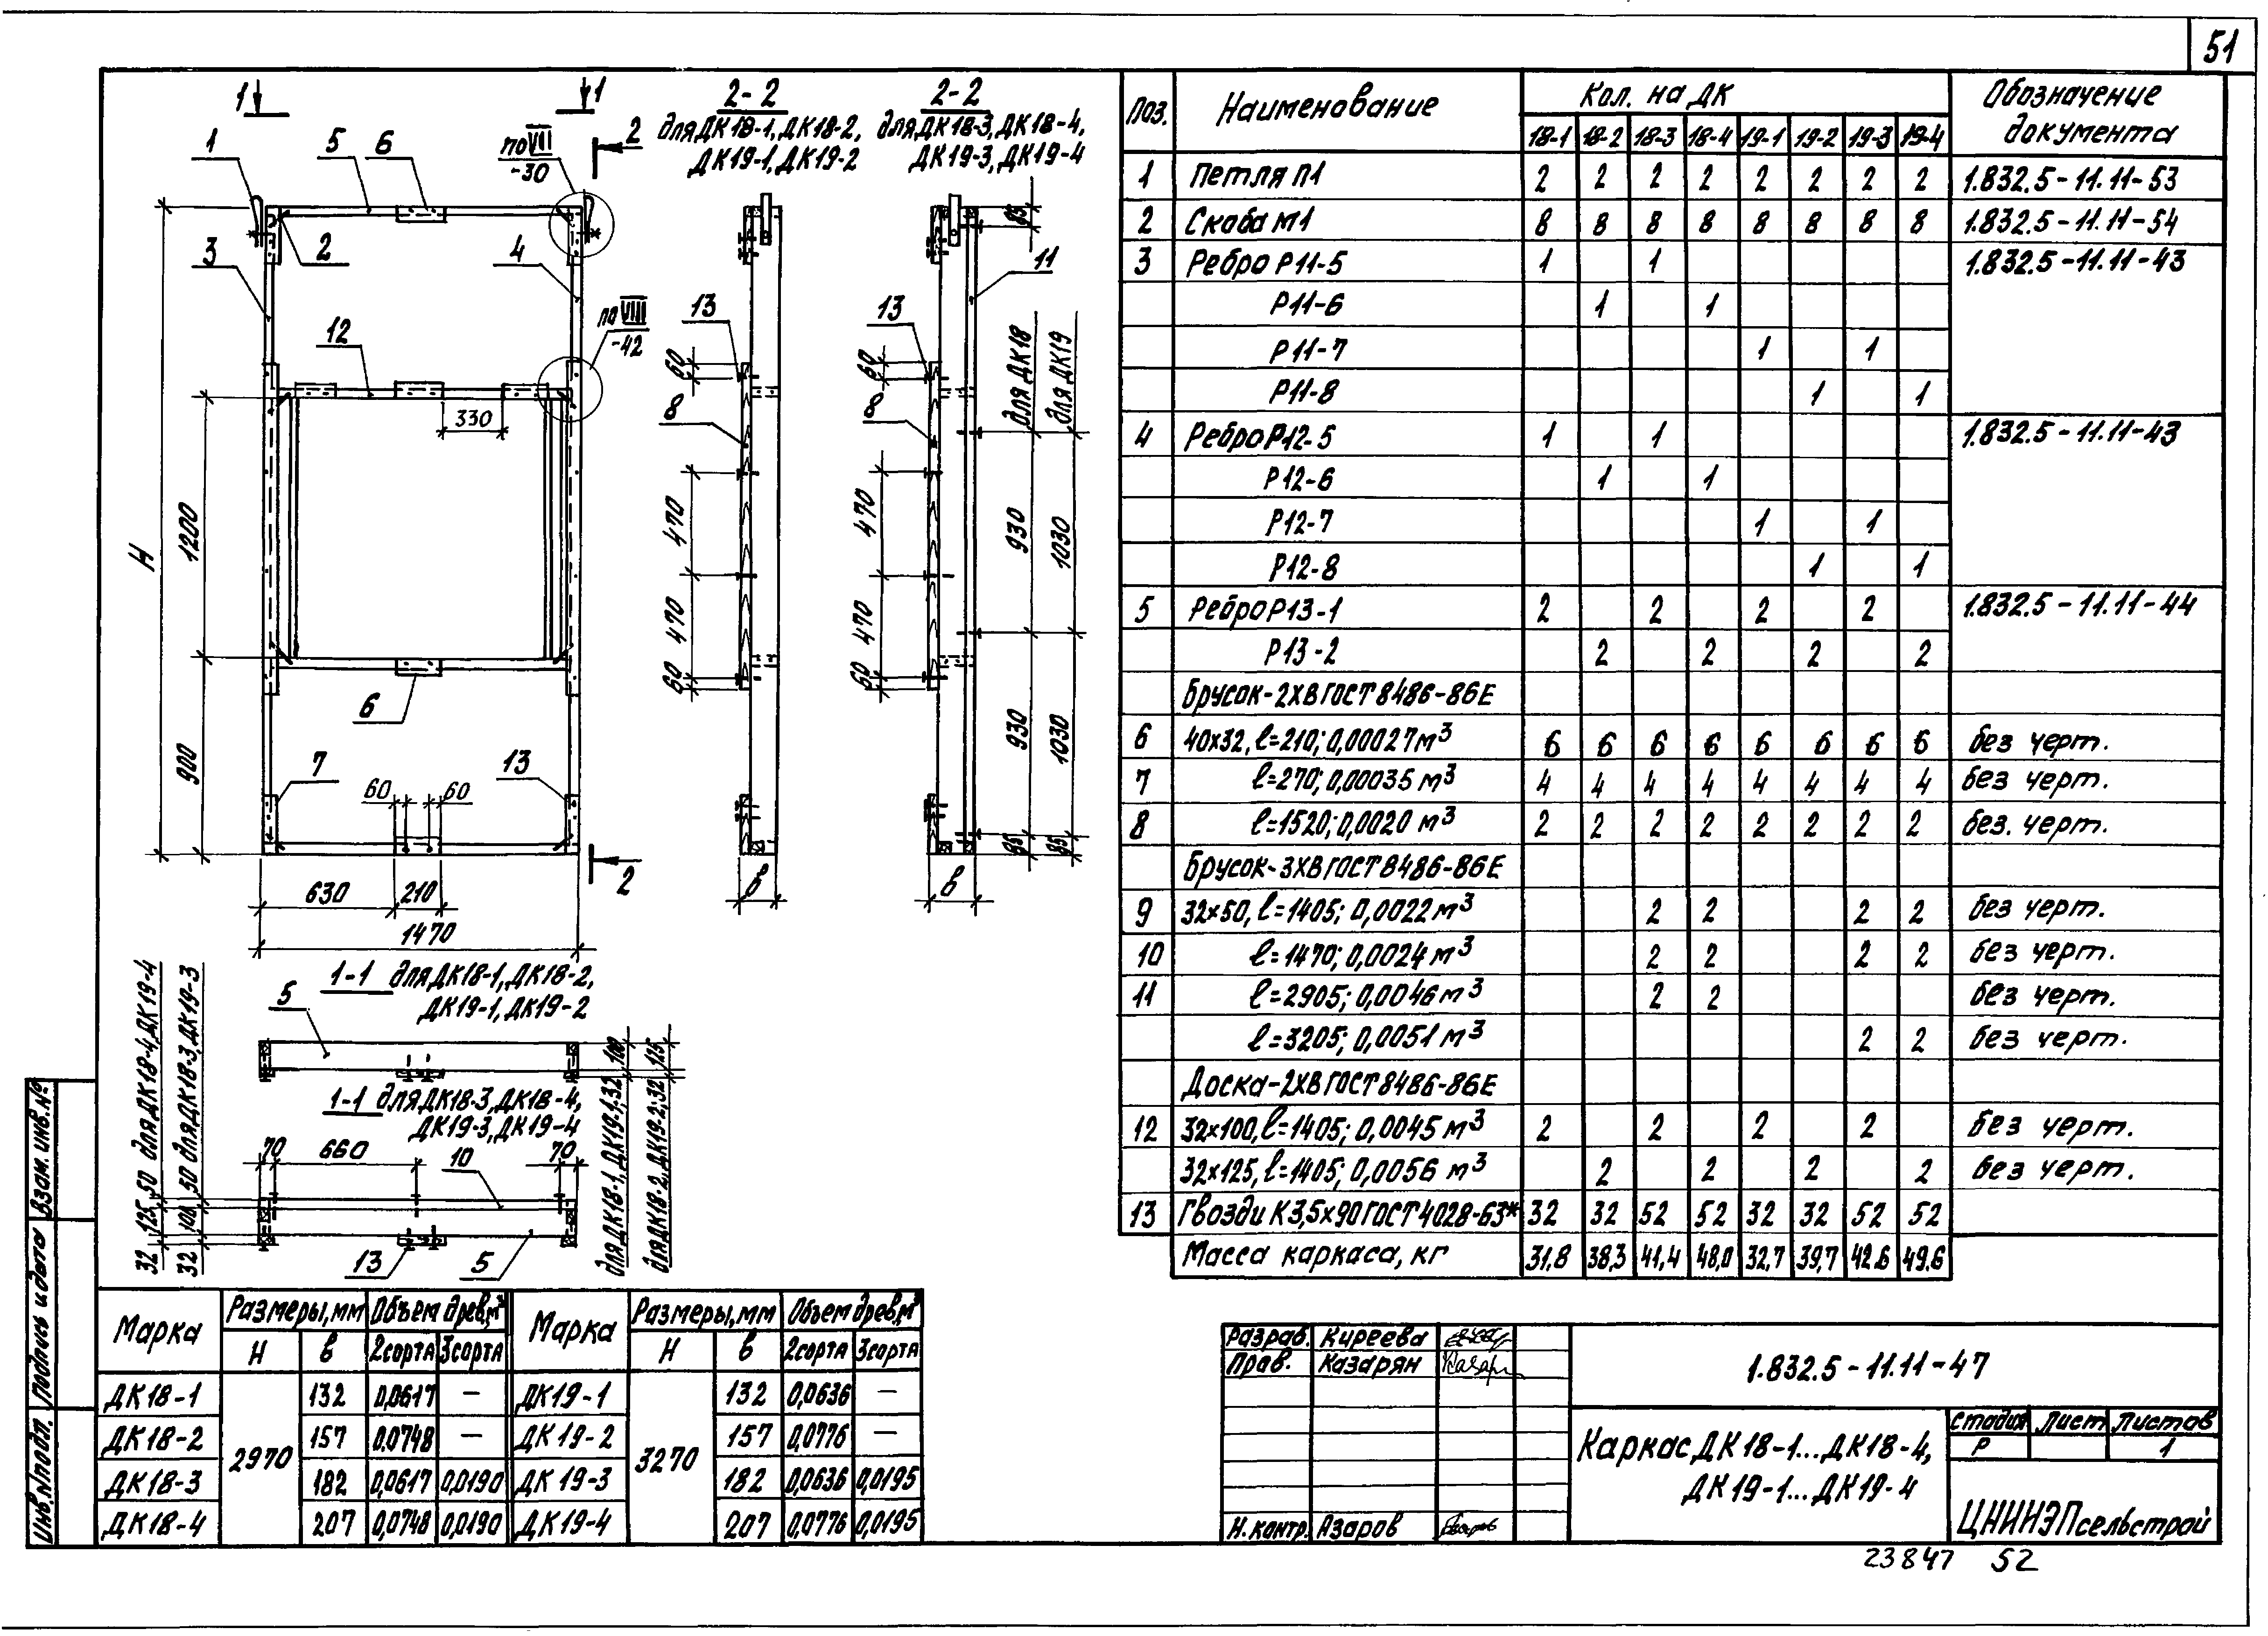 51
1
1
1
5
6
по VII
-30
2
3
2
4
12
по VIII
-42
330
H
1200
900
6
7
60
60
13
2
630
210
1470
2-2
для ДК18-1, ДК18-2,
ДК19-1, ДК19-2
13
60
8
470
470
60
в
2-2
для ДК18-3, ДК18-4,
ДК19-3, ДК19-4
11
13
60
8
470
470
60
для ДК18
для ДК19
930
1030
930
1030
в
1-1 для ДК18-1, ДК18-2,
ДК19-1, ДК19-2
5
1-1 для ДК18-3, ДК18-4,
ДК19-3, ДК19-4
70
660
10
70
13
5
32 125 50 для ДК18-4, ДК19-4
32 100 50 для ДК18-3, ДК19-3
для ДК18-1, ДК19-1, 32 100
для ДК18-2, ДК19-2, 32 125
Поз. Наименование Кол. на ДК Обозначение документа
18-1 18-2 18-3 18-4 19-1 19-2 19-3 19-4
1 Петля П1 2 2 2 2 2 2 2 2 1.832.5-11.11-53
2 Скоба М1 8 8 8 8 8 8 8 8 1.832.5-11.11-54
3 Ребро Р11-5 1 1 1.832.5-11.11-43
Р11-6 1 1
Р11-7 1 1
Р11-8 1 1
4 Ребро Р12-5 1 1 1.832.5-11.11-43
Р12-6 1 1
Р12-7 1 1
Р12-8 1 1
5 Ребро Р13-1 2 2 2 2 1.832.5-11.11-44
Р13-2 2 2 2 2
Брусок-2ХВ ГОСТ 8486-86Е
6 40х32, ℓ=210; 0,00027м³ 6 6 6 6 6 6 6 6 без черт.
7 ℓ=270; 0,00035 м³ 4 4 4 4 4 4 4 4 без черт.
8 ℓ=1520; 0,0020 м³ 2 2 2 2 2 2 2 2 без. черт.
Брусок-3ХВ ГОСТ 8486-86Е
9 32х50, ℓ=1405; 0,0022м³ 2 2 2 2 без черт.
10 ℓ=1470; 0,0024 м³ 2 2 2 2 без черт.
11 ℓ=2905; 0,0046 м³ 2 2 без черт.
ℓ=3205; 0,0051 м³ 2 2 без черт.
Доска-2ХВ ГОСТ 8486-86Е
12 32х100, ℓ=1405; 0,0045 м³ 2 2 2 2 без черт.
32х125, ℓ=1405; 0,0056 м³ 2 2 2 2 без черт.
13 Гвозди К3,5х90 ГОСТ 4028-63* 32 32 52 52 32 32 52 52
Масса каркаса, кг 31,8 38,3 41,4 48,0 32,7 39,7 42.6 49.6
Марка Размеры, мм Объем древ, м³ Марка Размеры, мм Объем древ, м³
H в 2сорта 3сорта H в 2сорта 3сорта
ДК18-1 2970 132 0,0617 — ДК19-1 3270 132 0,0636 —
ДК18-2 157 0,0748 — ДК19-2 157 0,0776 —
ДК18-3 182 0,0617 0,0190 ДК19-3 182 0,0636 0,0195
ДК18-4 207 0,0748 0,0190 ДК19-4 207 0,0776 0,0195
Разраб. Киреева
Пров. Казарян
Н. контр. Азаров
1.832.5-11.11-47
Каркас ДК18-1...ДК18-4,
ДК19-1...ДК19-4
Стадия Лист Листов
Р 1
ЦНИИЭПсельстрой
23847 52
Инв.№подл. Подпись и дата Взам. инв.№